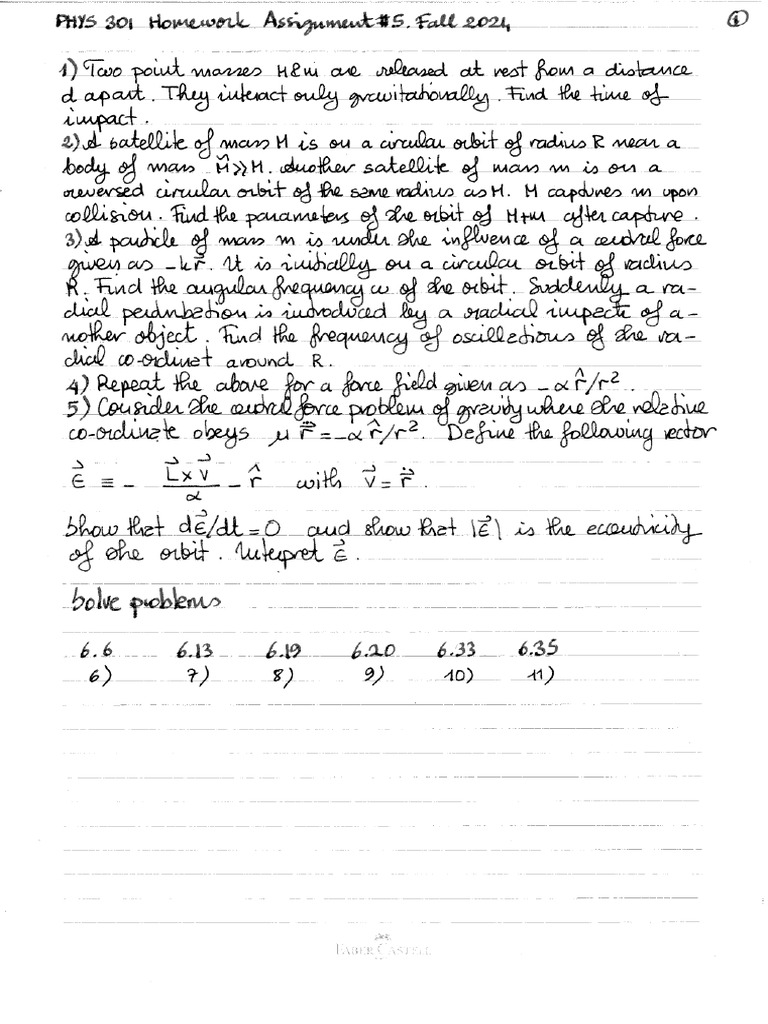 PHYS 301 Homework Assignment #5. Fall 2024
1
1) Two point masses M&m are released at rest from a distance
d apart. They interact only gravitationally. Find the time of
impact.
2) A satellite of mass M is on a circular orbit of radius R near a
body of mass M̃≫M. Another satellite of mass m is on a
reversed circular orbit of the same radius as M. M captures m upon
collision. Find the parameters of the orbit of M+m after capture.
3) A particle of mass m is under the influence of a central force
given as -kr⃗. It is initially on a circular orbit of radius
R. Find the angular frequency ω of the orbit. Suddenly a ra-
dial perturbation is introduced by a radial impact of a-
nother object. Find the frequency of oscillations of the ra-
dial co-ordinet around R.
4) Repeat the above for a force field given as -α r̂/r².
5) Consider the central force problem of gravity where the relative
co-ordinate obeys μ r⃗̈ = -α r̂/r². Define the following vector
ε⃗ ≡ - (L⃗ x v⃗)/α - r̂ with v⃗ = r⃗̇.
Show that dε⃗/dt = 0 and show that |ε⃗| is the eccentricity
of the orbit. Interpret ε⃗.
Solve problems
6.6 6.13 6.19 6.20 6.33 6.35
6) 7) 8) 9) 10) 11)
FABER CASTELL